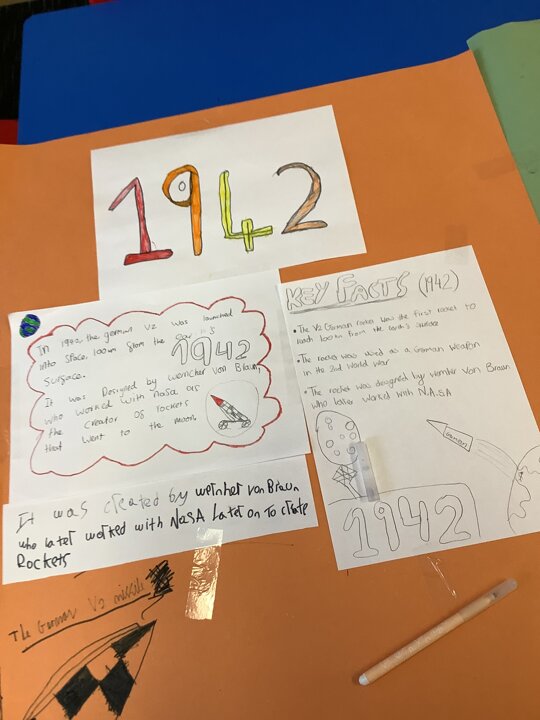 1942
In 1942 the german V2 was launched
into space 100km from the ear's
surface.
1942
It was Designed by wenher von Braun,
who worked with Nasa as
the creator of rockets
that went to the moon.
It was created by weinher von Braun
who later worked with NASA Later on To create
Rockets
The German V2 missile
KEY FACTS (1942)
• The V2 German rocket was the first rocket to
reach 100km from the earth's surface
• The rocket was used as a German weapon
in the 2nd World War
• The rocket was designed by Vernder Von Braun
who latter worked with N.A.S.A
1942